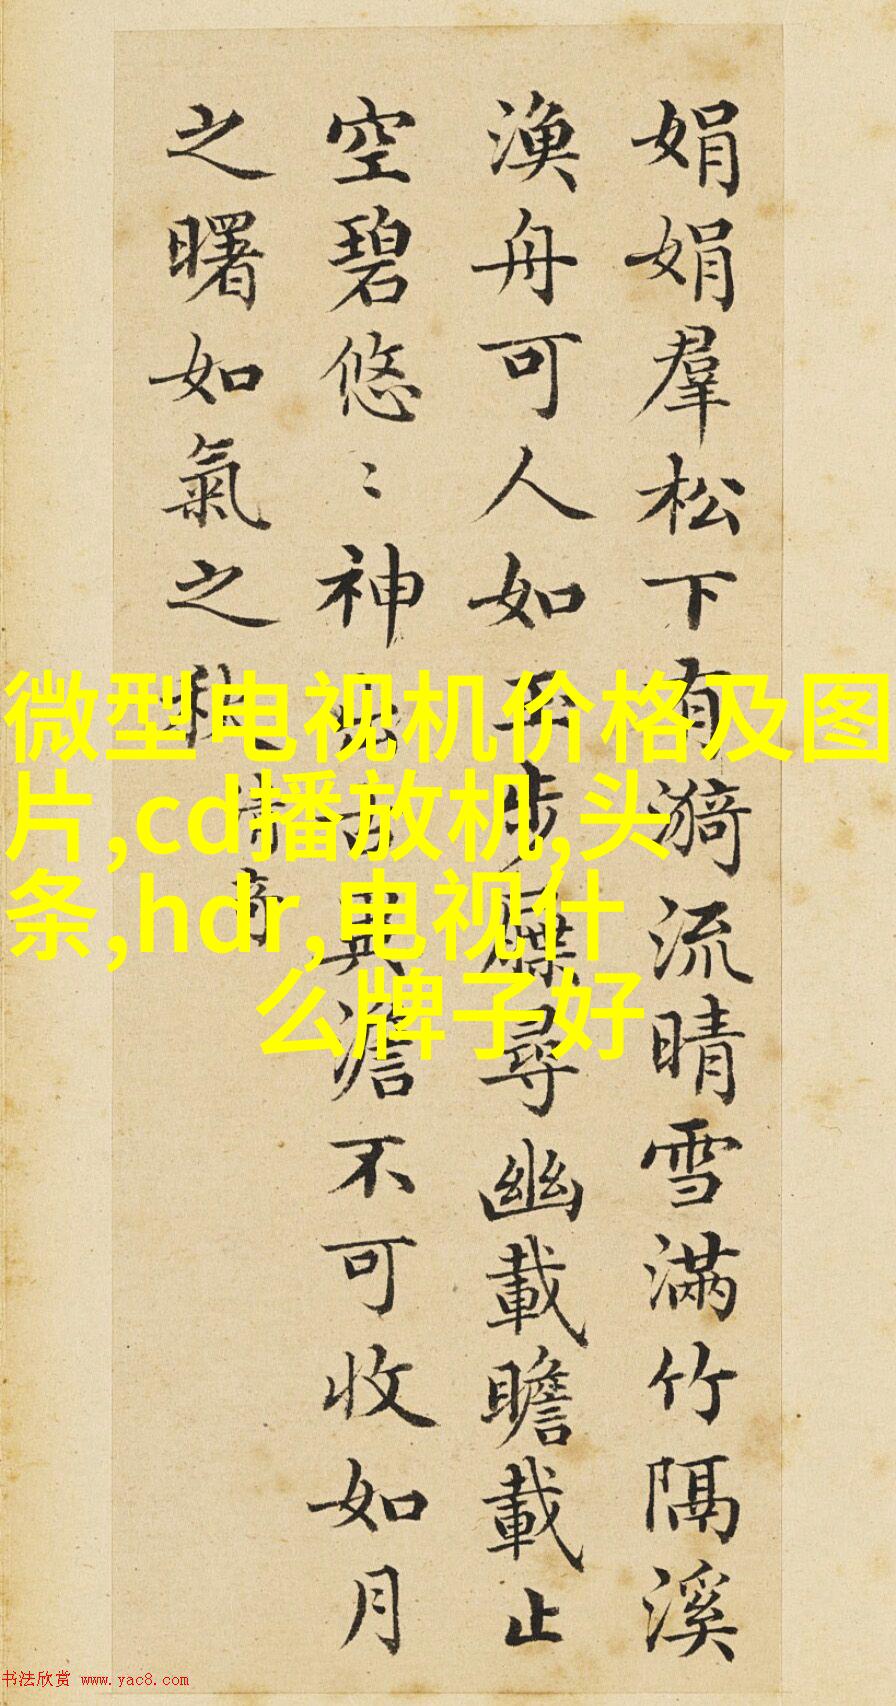 娟娟羣松下有漪流晴雪滿竹隔溪
漁舟可人如玉步屧尋幽載瞻載止
空碧悠〻神出古異澹不可收如月
之曙如氣之秋
清奇
微型电视机价格及图
片,cd播放机,头
条,hdr,电视什
么牌子好
书法欣赏 www.yac8.com